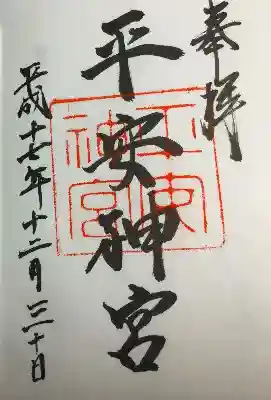 奉拝
平安神宮
平安
神宮
平成十七年十二月三十日